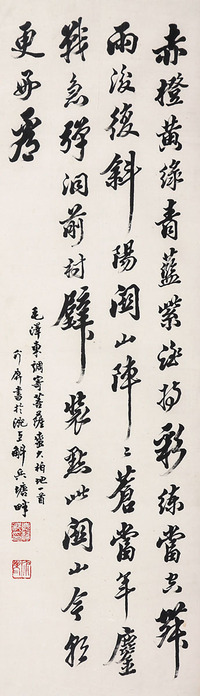 赤橙黄绿青蓝紫谁持彩练当空舞
雨后复斜阳関山阵〻苍当年鏖
战急弹洞前村壁装点此関山今朝
更好看
毛泽东词寄菩萨蛮大柏地一首
介屏书於沈并解兵塘畔